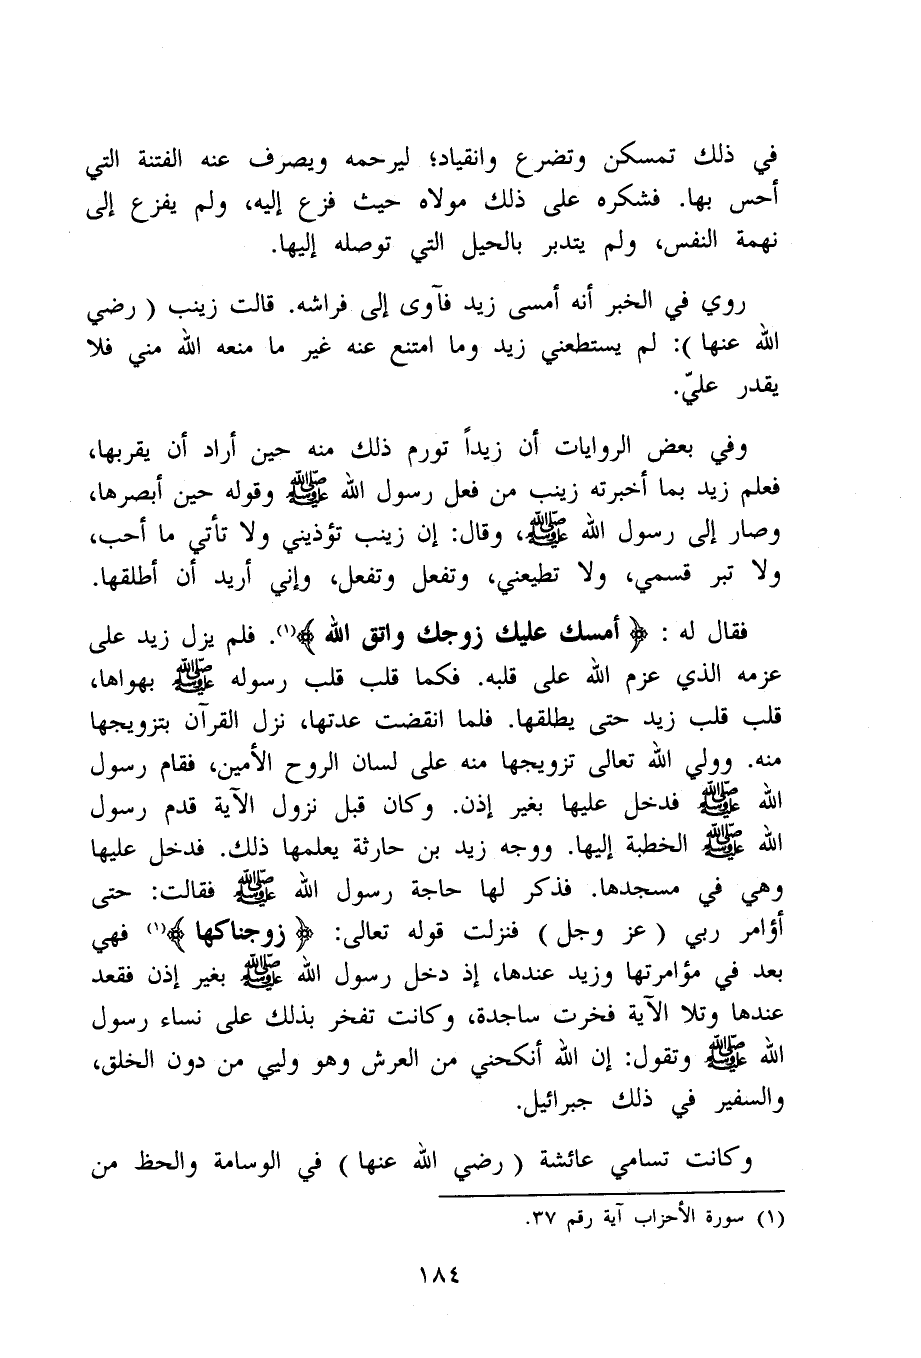 في ذلك تمسكن وتضرع وانقياد؛ ليرحمه ويصرف عنه الفتنة التي
أحس بها. فشكره على ذلك مولاه حيث فزع إليه، ولم يفزع إلى
نهمة النفس، ولم يتدبر بالحيل التي توصله إليها.
روي في الخبر أنه أمسى زيد فآوى إلى فراشه. قالت زينب ( رضي
الله عنها ): لم يستطعني زيد وما امتنع عنه غير ما منعه الله مني فلا
يقدر عليّ.
وفي بعض الروايات أن زيداً تورم ذلك منه حين أراد أن يقربها،
فعلم زيد بما أخبرته زينب من فعل رسول الله ﷺ وقوله حين أبصرها،
وصار إلى رسول الله ﷺ، وقال: إن زينب تؤذيني ولا تأتي ما أحب،
ولا تبر قسمي، ولا تطيعني، وتفعل وتفعل، وإني أريد أن أطلقها.
فقال له : ﴿ أمسك عليك زوجك واتق الله ﴾(١). فلم يزل زيد على
عزمه الذي عزم الله على قلبه. فكما قلب قلب رسوله ﷺ بهواها،
قلب قلب زيد حتى يطلقها. فلما انقضت عدتها، نزل القرآن بتزويجها
منه. وولي الله تعالى تزويجها منه على لسان الروح الأمين، فقام رسول
الله ﷺ فدخل عليها بغير إذن. وكان قبل نزول الآية قدم رسول
الله ﷺ الخطبة إليها. ووجه زيد بن حارثة يعلمها ذلك. فدخل عليها
وهي في مسجدها. فذكر لها حاجة رسول الله ﷺ فقالت: حتى
أؤامر ربي ( عز وجل ) فنزلت قوله تعالى: ﴿ زوجناكها ﴾(١) فهي
بعد في مؤامرتها وزيد عندها، إذ دخل رسول الله ﷺ بغير إذن فقعد
عندها وتلا الآية فخرت ساجدة، وكانت تفخر بذلك على نساء رسول
الله ﷺ وتقول: إن الله أنكحني من العرش وهو وليي من دون الخلق،
والسفير في ذلك جبرائيل.
وكانت تسامي عائشة ( رضي الله عنها ) في الوسامة والحظ من
(١) سورة الأحزاب آية رقم ٣٧.
١٨٤